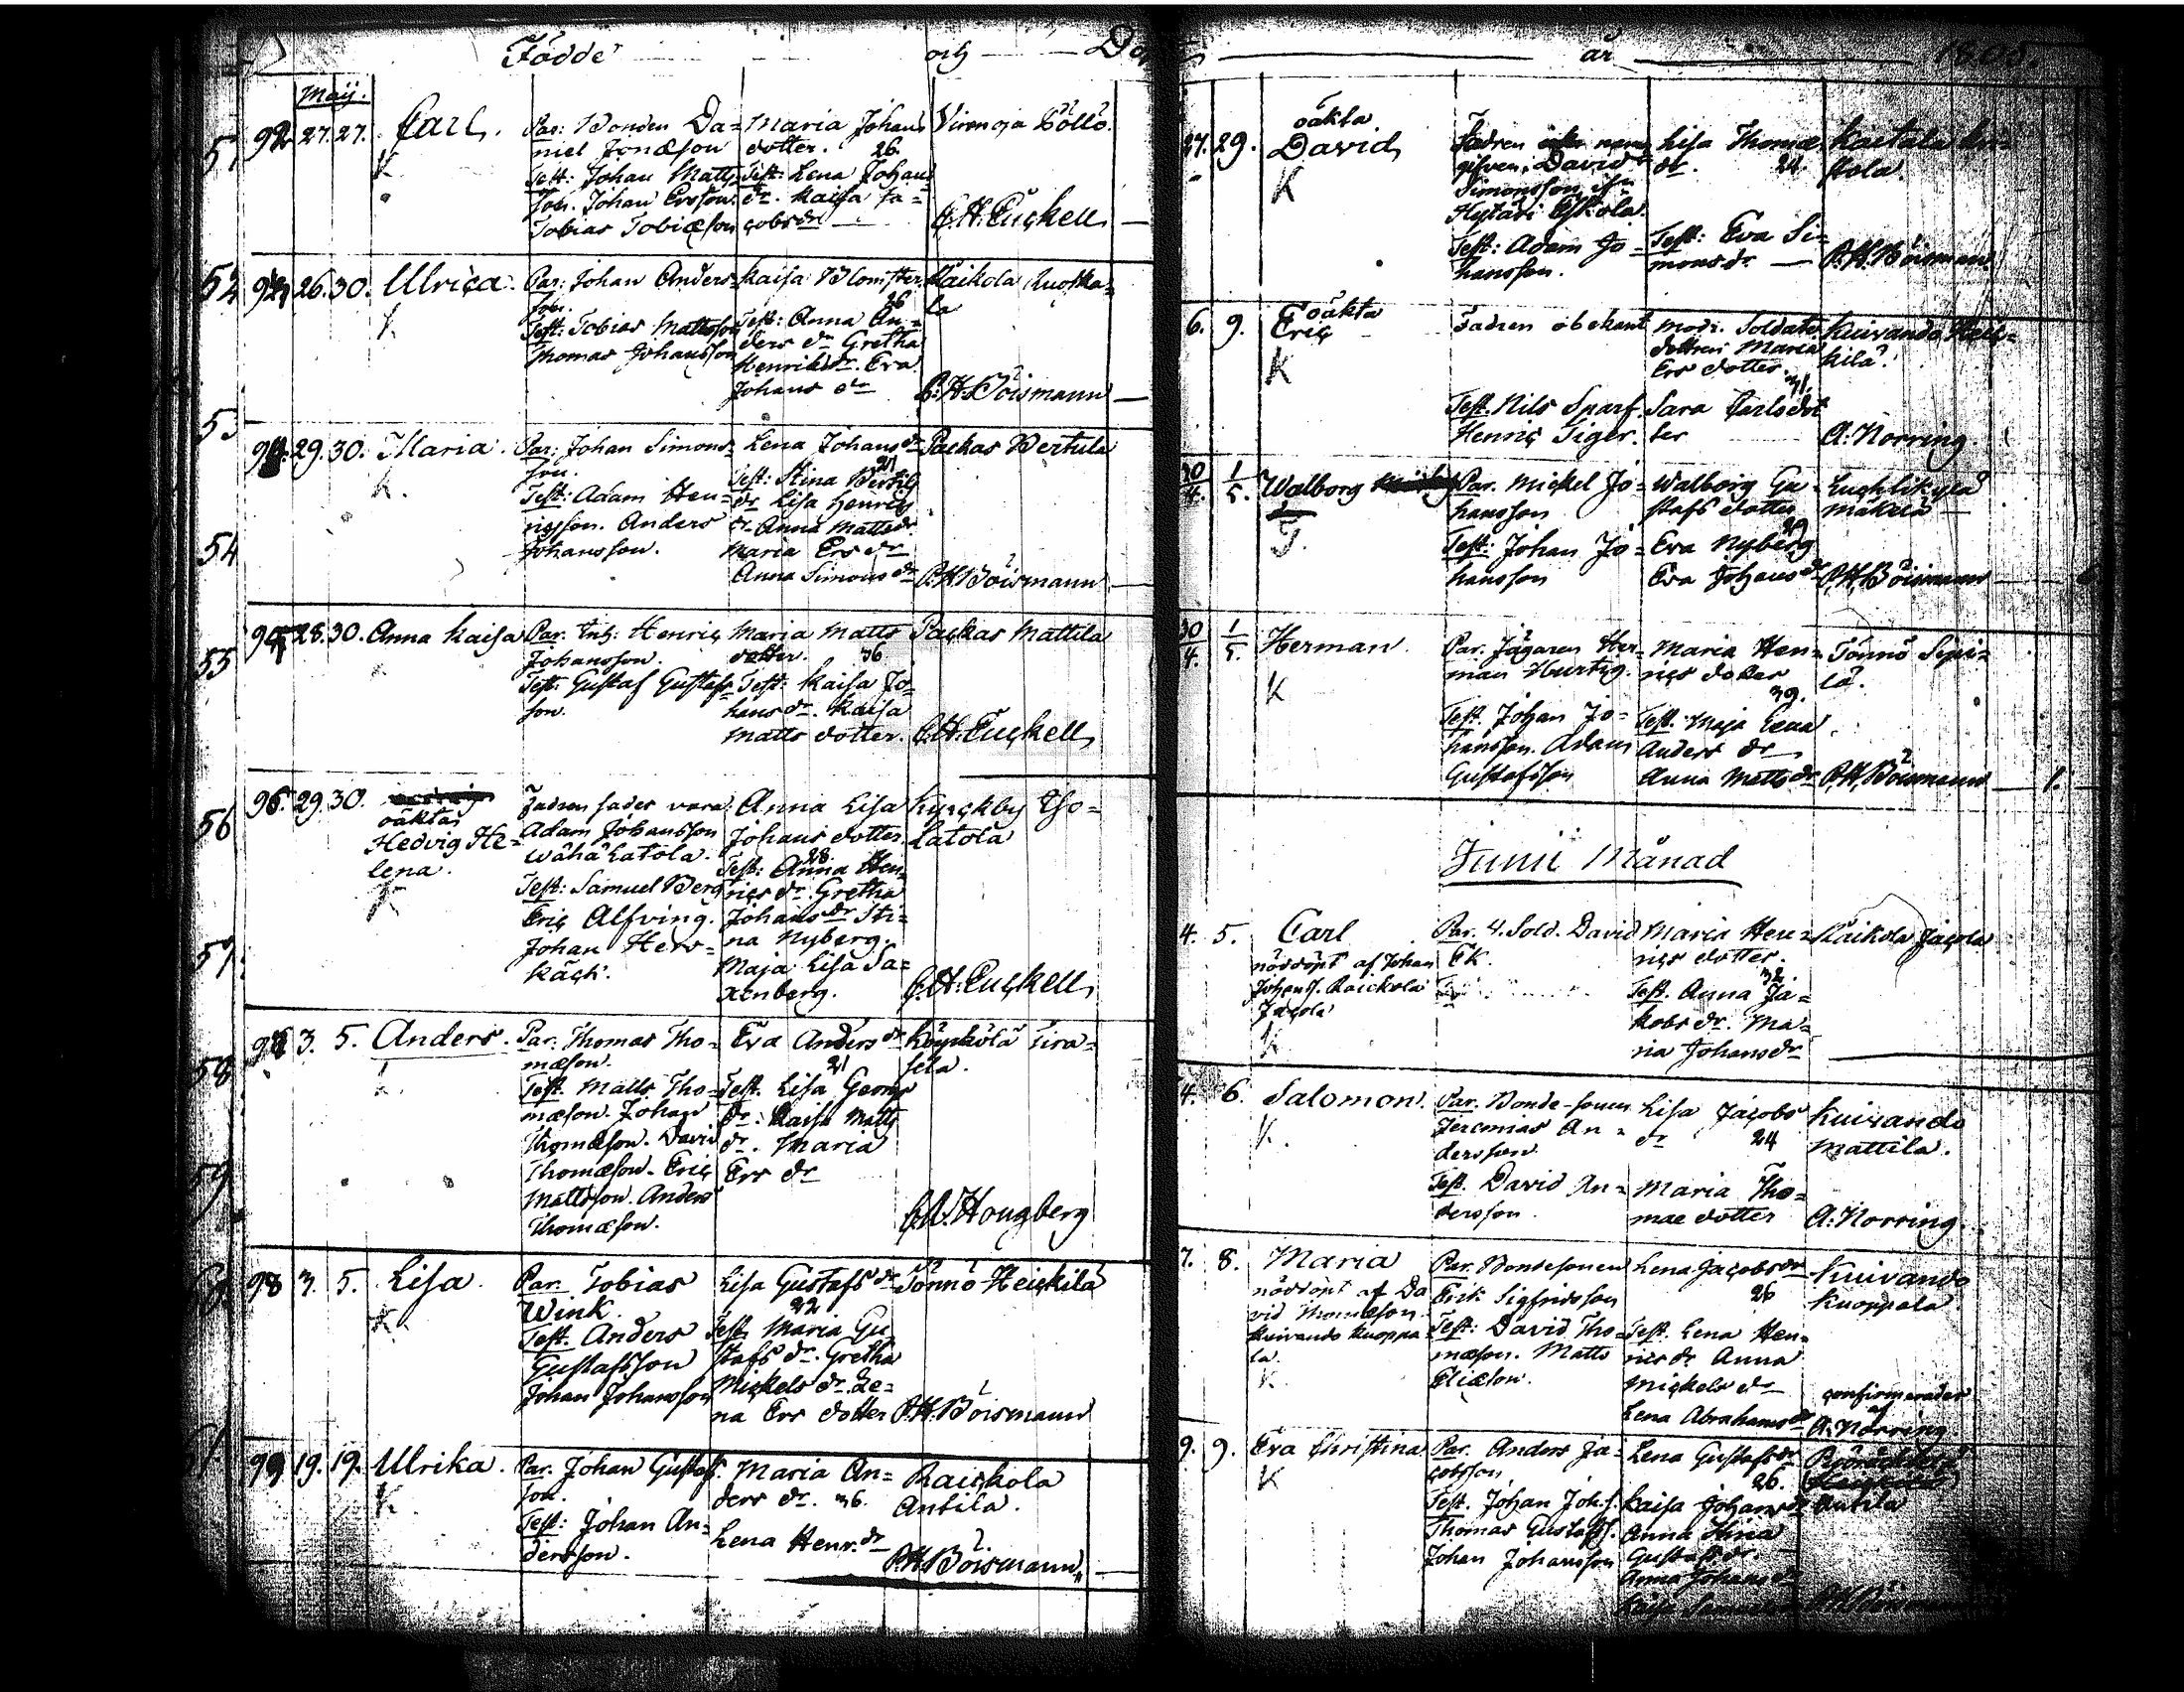 Födde och Döpte år 1805.
Maij.
51 92 27. 27. Carl.
K
Par: Bonden Da=
niel Jonæson
Test: Johan Matts
son. Johan Ersson.
Tobias Tobiæson
Maria Johans
dotter. 26.
Test: Lena Johans
dr. Kaisa Ja=
cobsdr
Virenoja Pöllö.
C.H. Euckell
52 93 26. 30. Ulrica.
K
Par: Johan Anders=
son.
Test: Tobias Mattsson
Thomas Johansson
Kaisa Blomster.
26
Test: Anna An=
ders dr Gretha
Henriksdr. Eva
Johans dr
Raikola Kuoska=
la
P.H. Böismann
53 94. 29. 30. Maria.
K.
Par: Johan Simons=
son.
Test: Adam Hen=
ricsson. Anders
Johansson.
Lena Johans dr
Test: Stina Bertils
dr Lisa Henrics
dr. Anna Mattsdr
Maria Ers dr
Anna Simons dr
Packas Bertula
P.H. Böismann
54
55 95 28. 30. Anna Kaisa
Par. Henric
Johansson.
Test: Gustaf Gustafs
son.
Maria Matts
dotter. 36
Test: Kaisa Jo=
hans dr. Kaisa
Matts dotter.
Packas Mattila
C.H. Euckell
56 96. 29. 30.
oäkta
Hedvig He=
lena.
K
Fadren säges vara
Adam Johansson
Wähä Latola.
Test: Samuel Berg
Eric Alfving.
Johan Hers=
käck.
Anna Lisa
Johans dotter.
28.
Test: Anna Hen=
rics dr. Gretha
Johans dr Sti=
na Nyberg.
Maja Lisa Sa=
xenberg.
Kyrckby Iso=
Latola
C.H. Euckell
57
58 97 3. 5. Anders.
K.
Par. Thomas Tho=
mæson.
Test. Matts Tho=
mæson. Johan
Thomæson. David
Thomæson. Eric
Mattsson. Anders
Thomæson.
Eva Anders dr
21
Test. Lisa Georgs
dr. Kaisa Matts
dr. Maria
Ers dr
Köyckölä
Hougberg
59
60 98 3. 5. Lisa.
K
Par. Tobias
Wink.
Test. Anders
Gustafsson
Johan Johansson
Lisa Gustafs dr
22
Test. Maria Gu
stafs dr. Gretha
Mickels dr. Le=
na Ers dotter
Tönnö Heickilä
P.H. Böismann
61. 99 19. 19. Ulrika.
K
Par. Johan Gustafs
son.
Test: Johan An=
dersson.
Maria An=
ders dr. 36.
Lena Henr. dr
Raickola
Antila.
P.H. Böismann
27. 29. oäkta
David
K
Fadren namn
gifven, David
Simonsson ifr.
Hytäri Eskola.
Test: Adam Jo=
hansson.
Lisa Thomæ
dr. 24.
Test: Eva Si=
mons dr.
Kaitala
skola.
P.H. Böismann.
6. 9. oäkta
Eric
K
Fadren obekant
Test. Nils Sparf.
Henric Siger.
Modr. Soldats
dottren Maria
Ers dotter.
31.
Sara Carlsdot
ter
Kuivando Heic=
kilä.
A: Norring.
30/4. 1/5. Walborg
T.
Par. Mickel Jo=
hansson
Test: Johan Jo=
hansson
Walborg Gu=
stafs dotter
29
Eva Nyberg
Eva Johans dr
Mäkelä
P.H. Böismann
30/4. 1/5. Herman.
K
Par. Jägaren Her=
man Hurtig.
Test. Johan Jo=
hansson. Adam
Gustafsson
Maria Hen=
rics dotter
39.
Test. Maja Lena
Anders dr
Anna Matts dr
Tönnö Sipi=
lä.
P.H. Böismann 1.
Junii Månad
4. 5. Carl
nöddöpt af Johan
Johans. Raickola
Jacola
K
Par. V. Sold. David
Ek.
Maria Hen=
rics dotter.
32.
Test. Anna Ja=
kobs dr. Ma=
ria Johans dr
Raikola Jacola
4. 6. Salomon.
K.
Par. Bonde-sonen
Jeremias An=
dersson
Test. David An=
dersson.
Lisa Jacobs
dr 24
Maria Tho=
mae dotter
Kuivando
Mattila.
A: Norring.
7. 8. Maria
nöddöpt af Da
vid Thomæson.
Kuivando Kuoppa=
la.
K.
Par. Bondesonen
Erik Sigfridsson
Test: David Tho=
mæson. Matts
Eliæson.
Lena Jacobs dr
26
Test. Lena Hen=
rics dr Anna
Mickels dr
Lena Abrahams dr
Kuivando
Kuoppala
confirmerader
af
A: Norring.
9. 9. Eva Christina
K
Par. Anders Ja=
cobsson
Test. Johan Joh.s.
Thomas Gustafs.
Johan Johansson
Lena Gustafs dr
26.
Kaisa Johans dr
Anna Stina
Gustafs dr.
Anna Johans dr
Antila